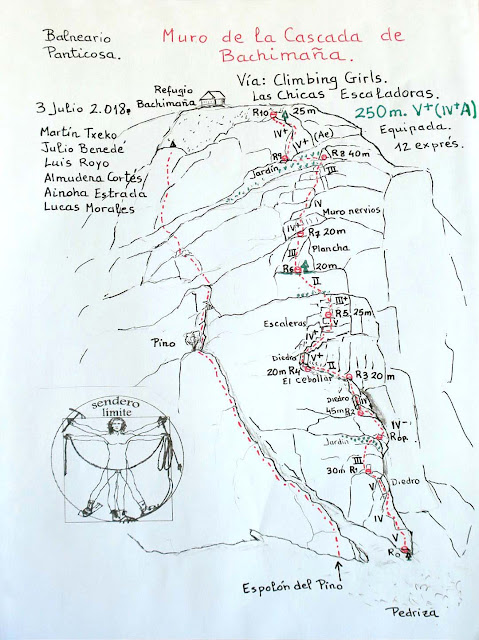 Balneario
Panticosa.
Muro de la Cascada de
Bachimaña.
Vía: Climbing Girls.
Las Chicas Escaladoras.
250m. V+(IV+A)
Equipada.
12 exprés.
3 Julio 2.018.
Martín Txeko
Julio Benedé
Luis Royo
Almudena Cortés
Ainoha Estrada
Lucas Morales
Refugio
Bachimaña
R10 25m
IV+
V+
(Ae)
R9
R8 40m
Jardín
III
IV
Muro nervios
IV
R7 20m
III
Plancha
R6 20m
II
III+
R5. 25m
Escaleras
V
IV+
Pino
Diedro
V+
20m R4
II
R3 20m
El Cebollar
Diedro
IV
45m R2
IV-
Róp.
Jardín
III
30m R1
Diedro
V
IV
V
R0
sendero
límite
Espolón del Pino
Pedriza